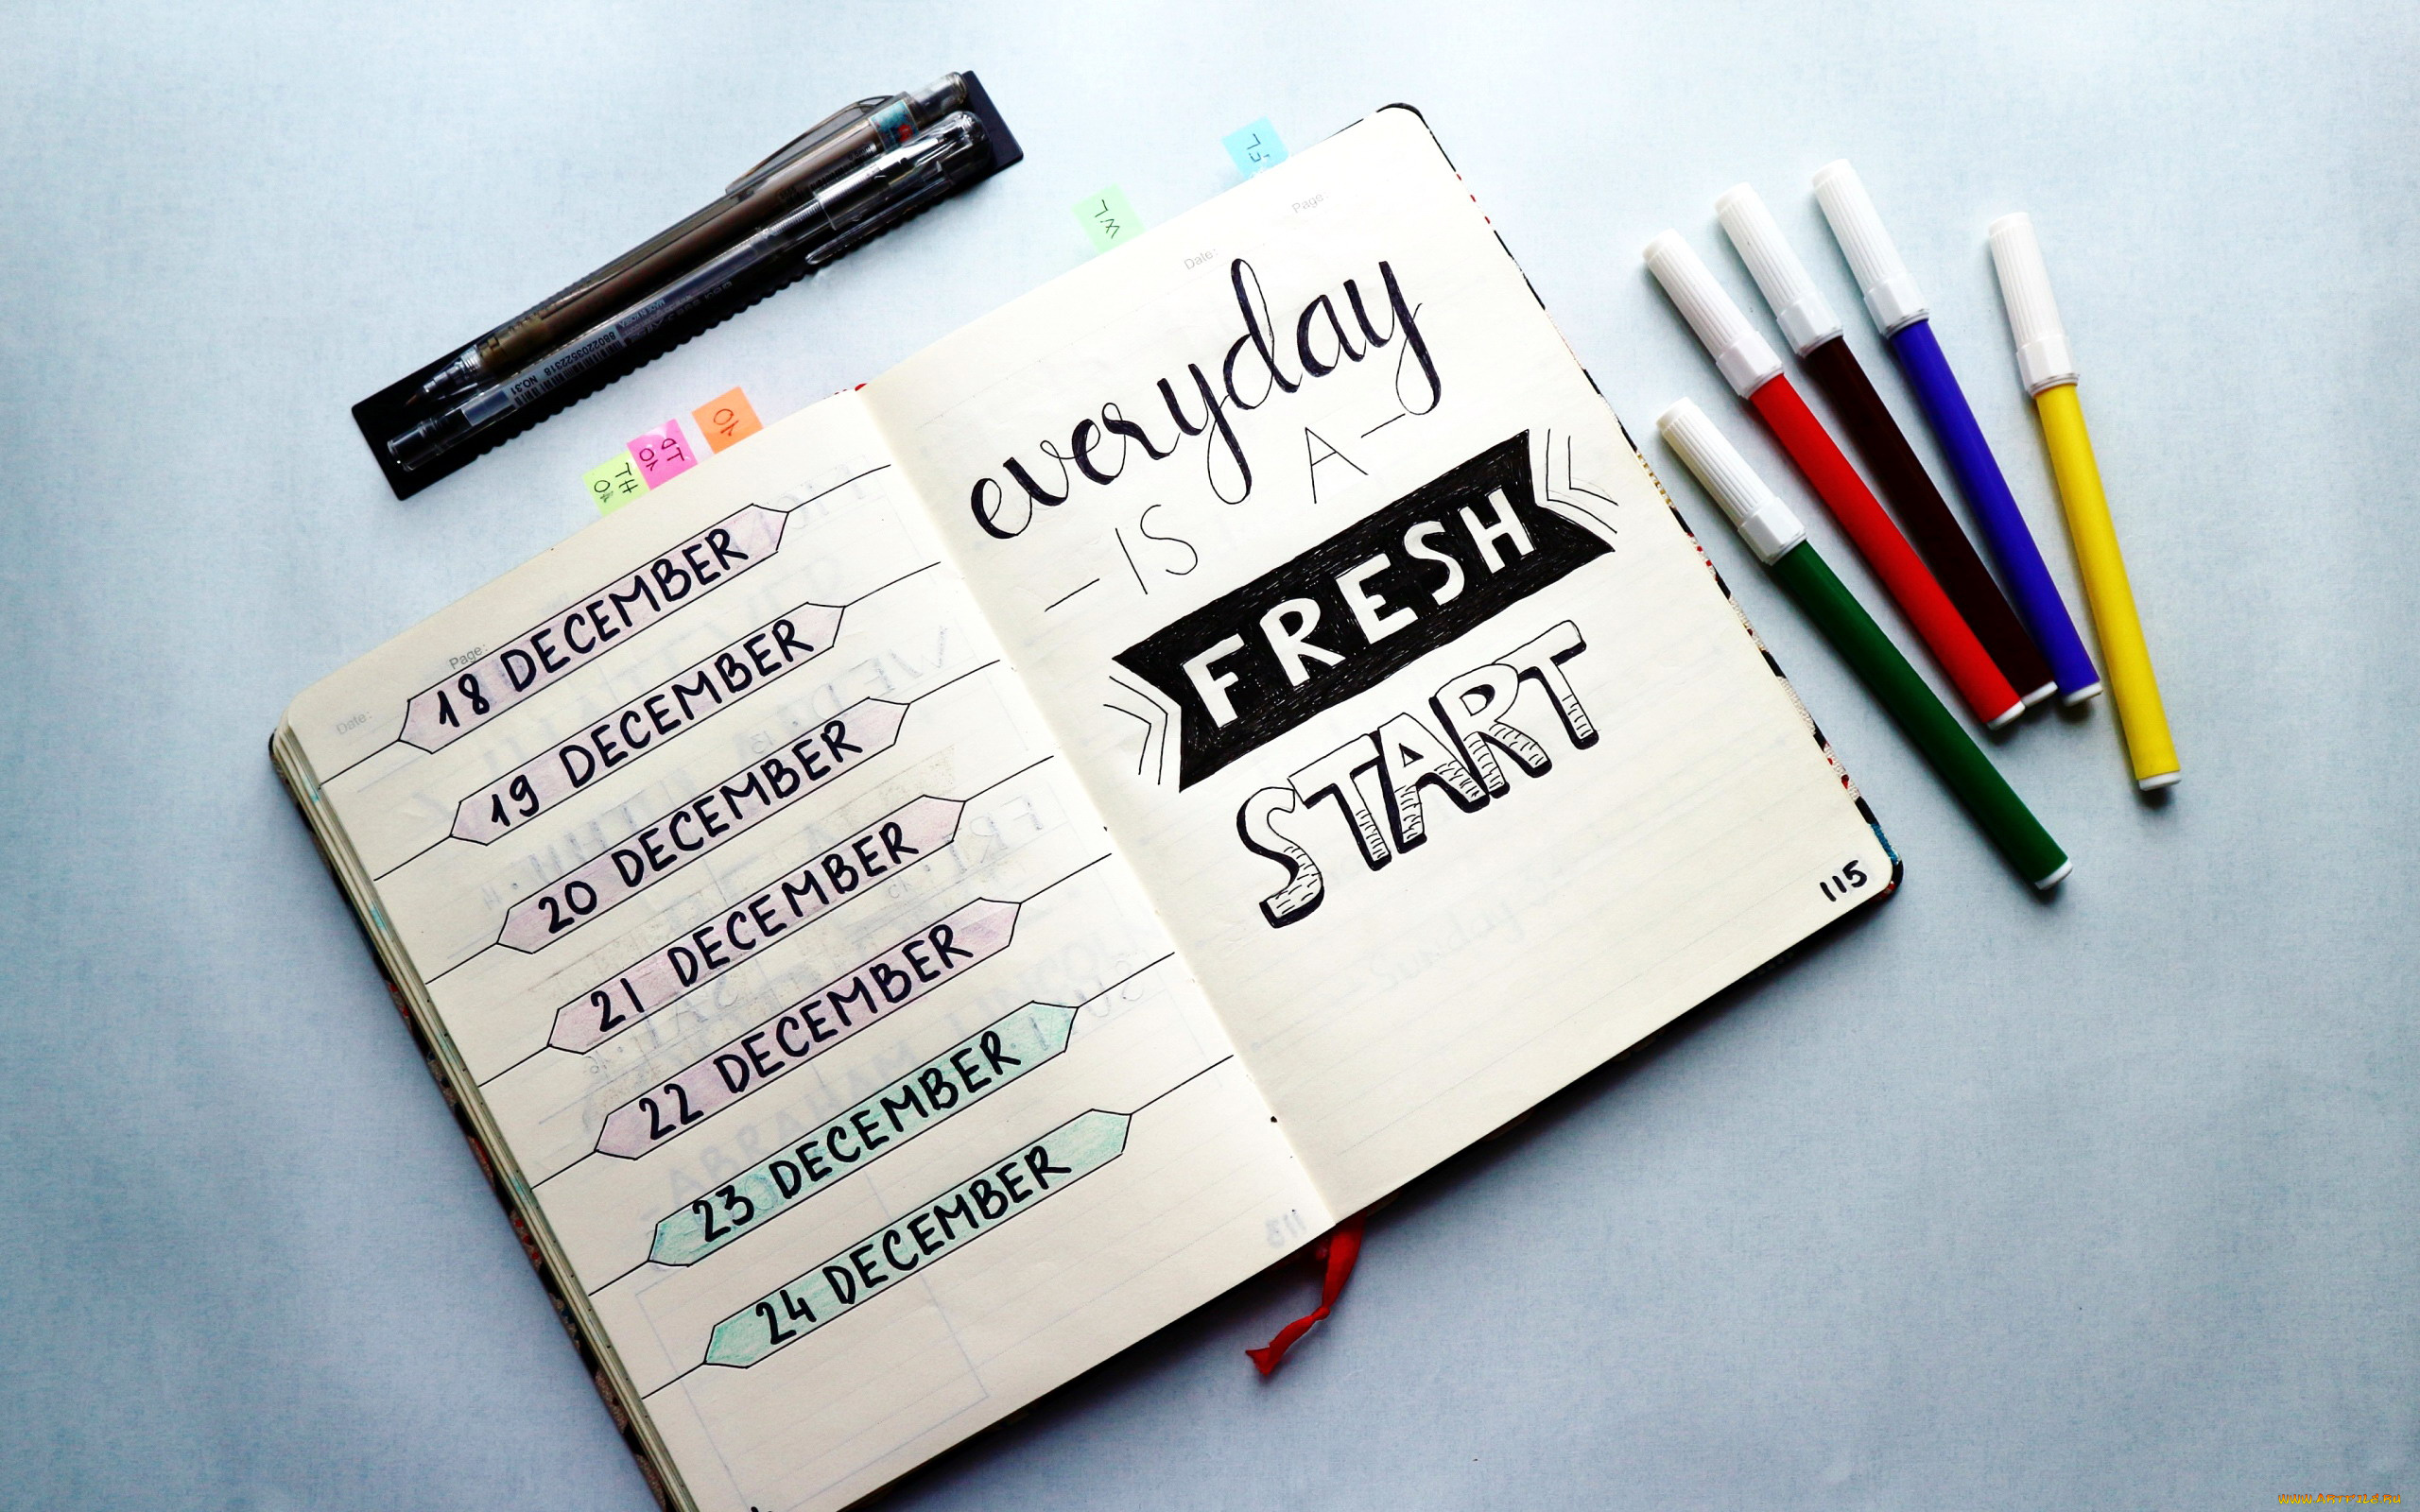 Page:
Date:
18 DECEMBER
19 DECEMBER
20 DECEMBER
21 DECEMBER
22 DECEMBER
23 DECEMBER
24 DECEMBER
Page:
Date:
everyday
IS A
FRESH
START
115
113
WL
FL
8802203522318 NO.31
MADE IN KOREA
WWW.ARTFILE.RU